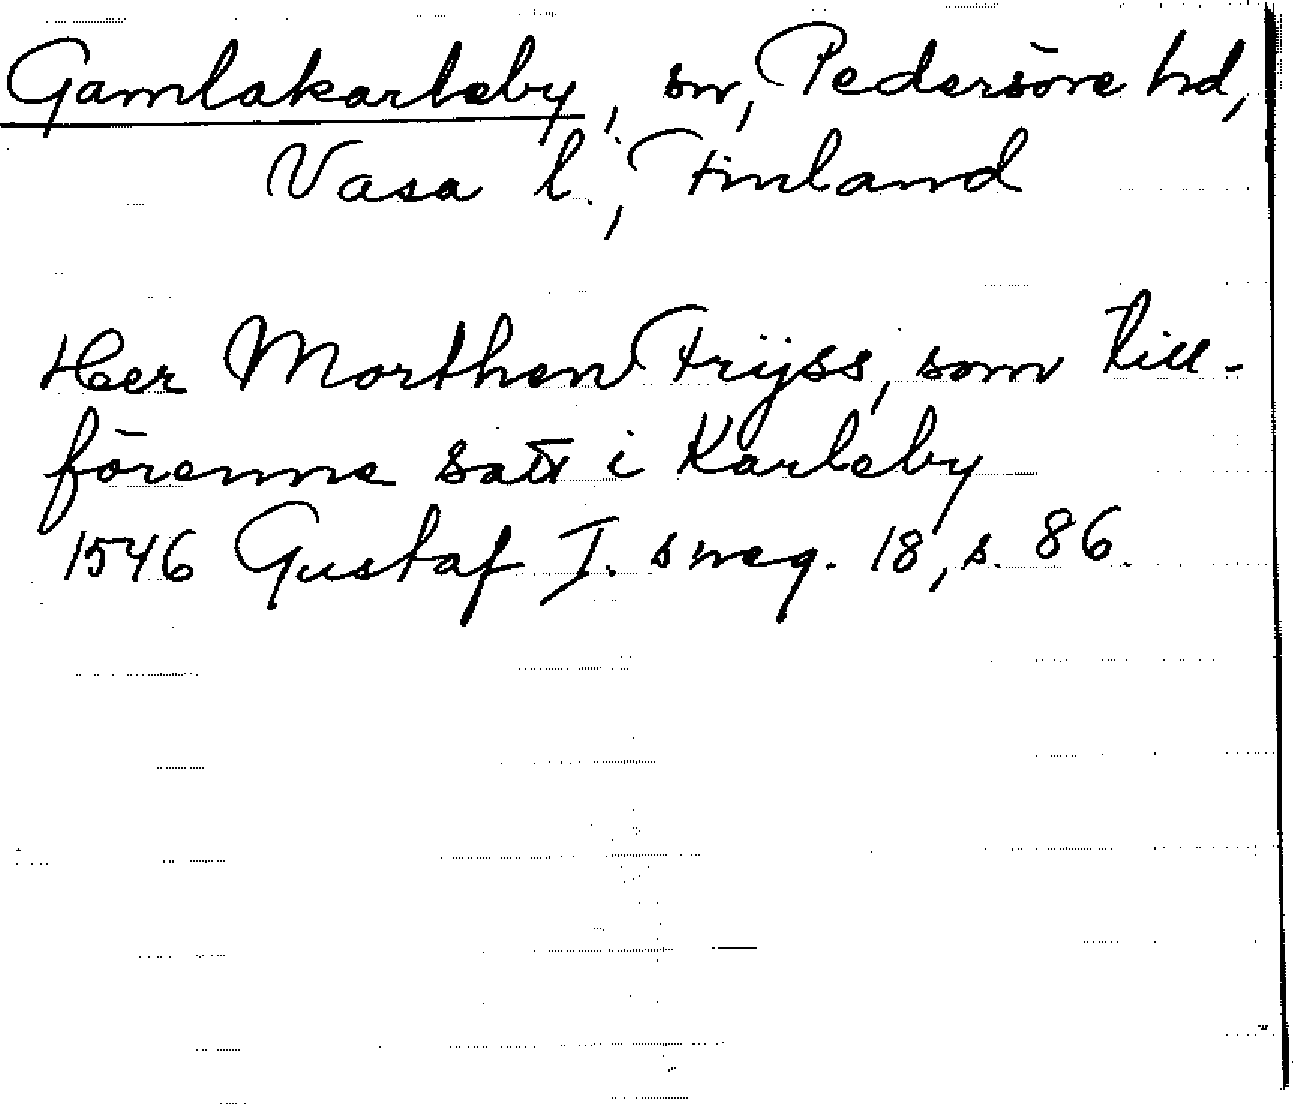 Gamlakarleby, sn, Pedersöre hd,
Vasa l., Finland
Her Morthen Frijss, som till-
förenne satt i Karleby
1546 Gustaf I. s reg. 18, s. 86.